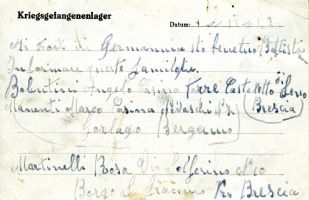 Kriegsgefangenenlager
Datum:
Mi trovo in Germania sto benetuo Battista
Informare queste famiglie
Bolentini Angelo Casina Torre Castelletto di Leno
Manenti Marco Casina No
Brescia
Gorlago Bergamo
Martinelli Rosa Via Solferino No 10
Borgo S. Brescia